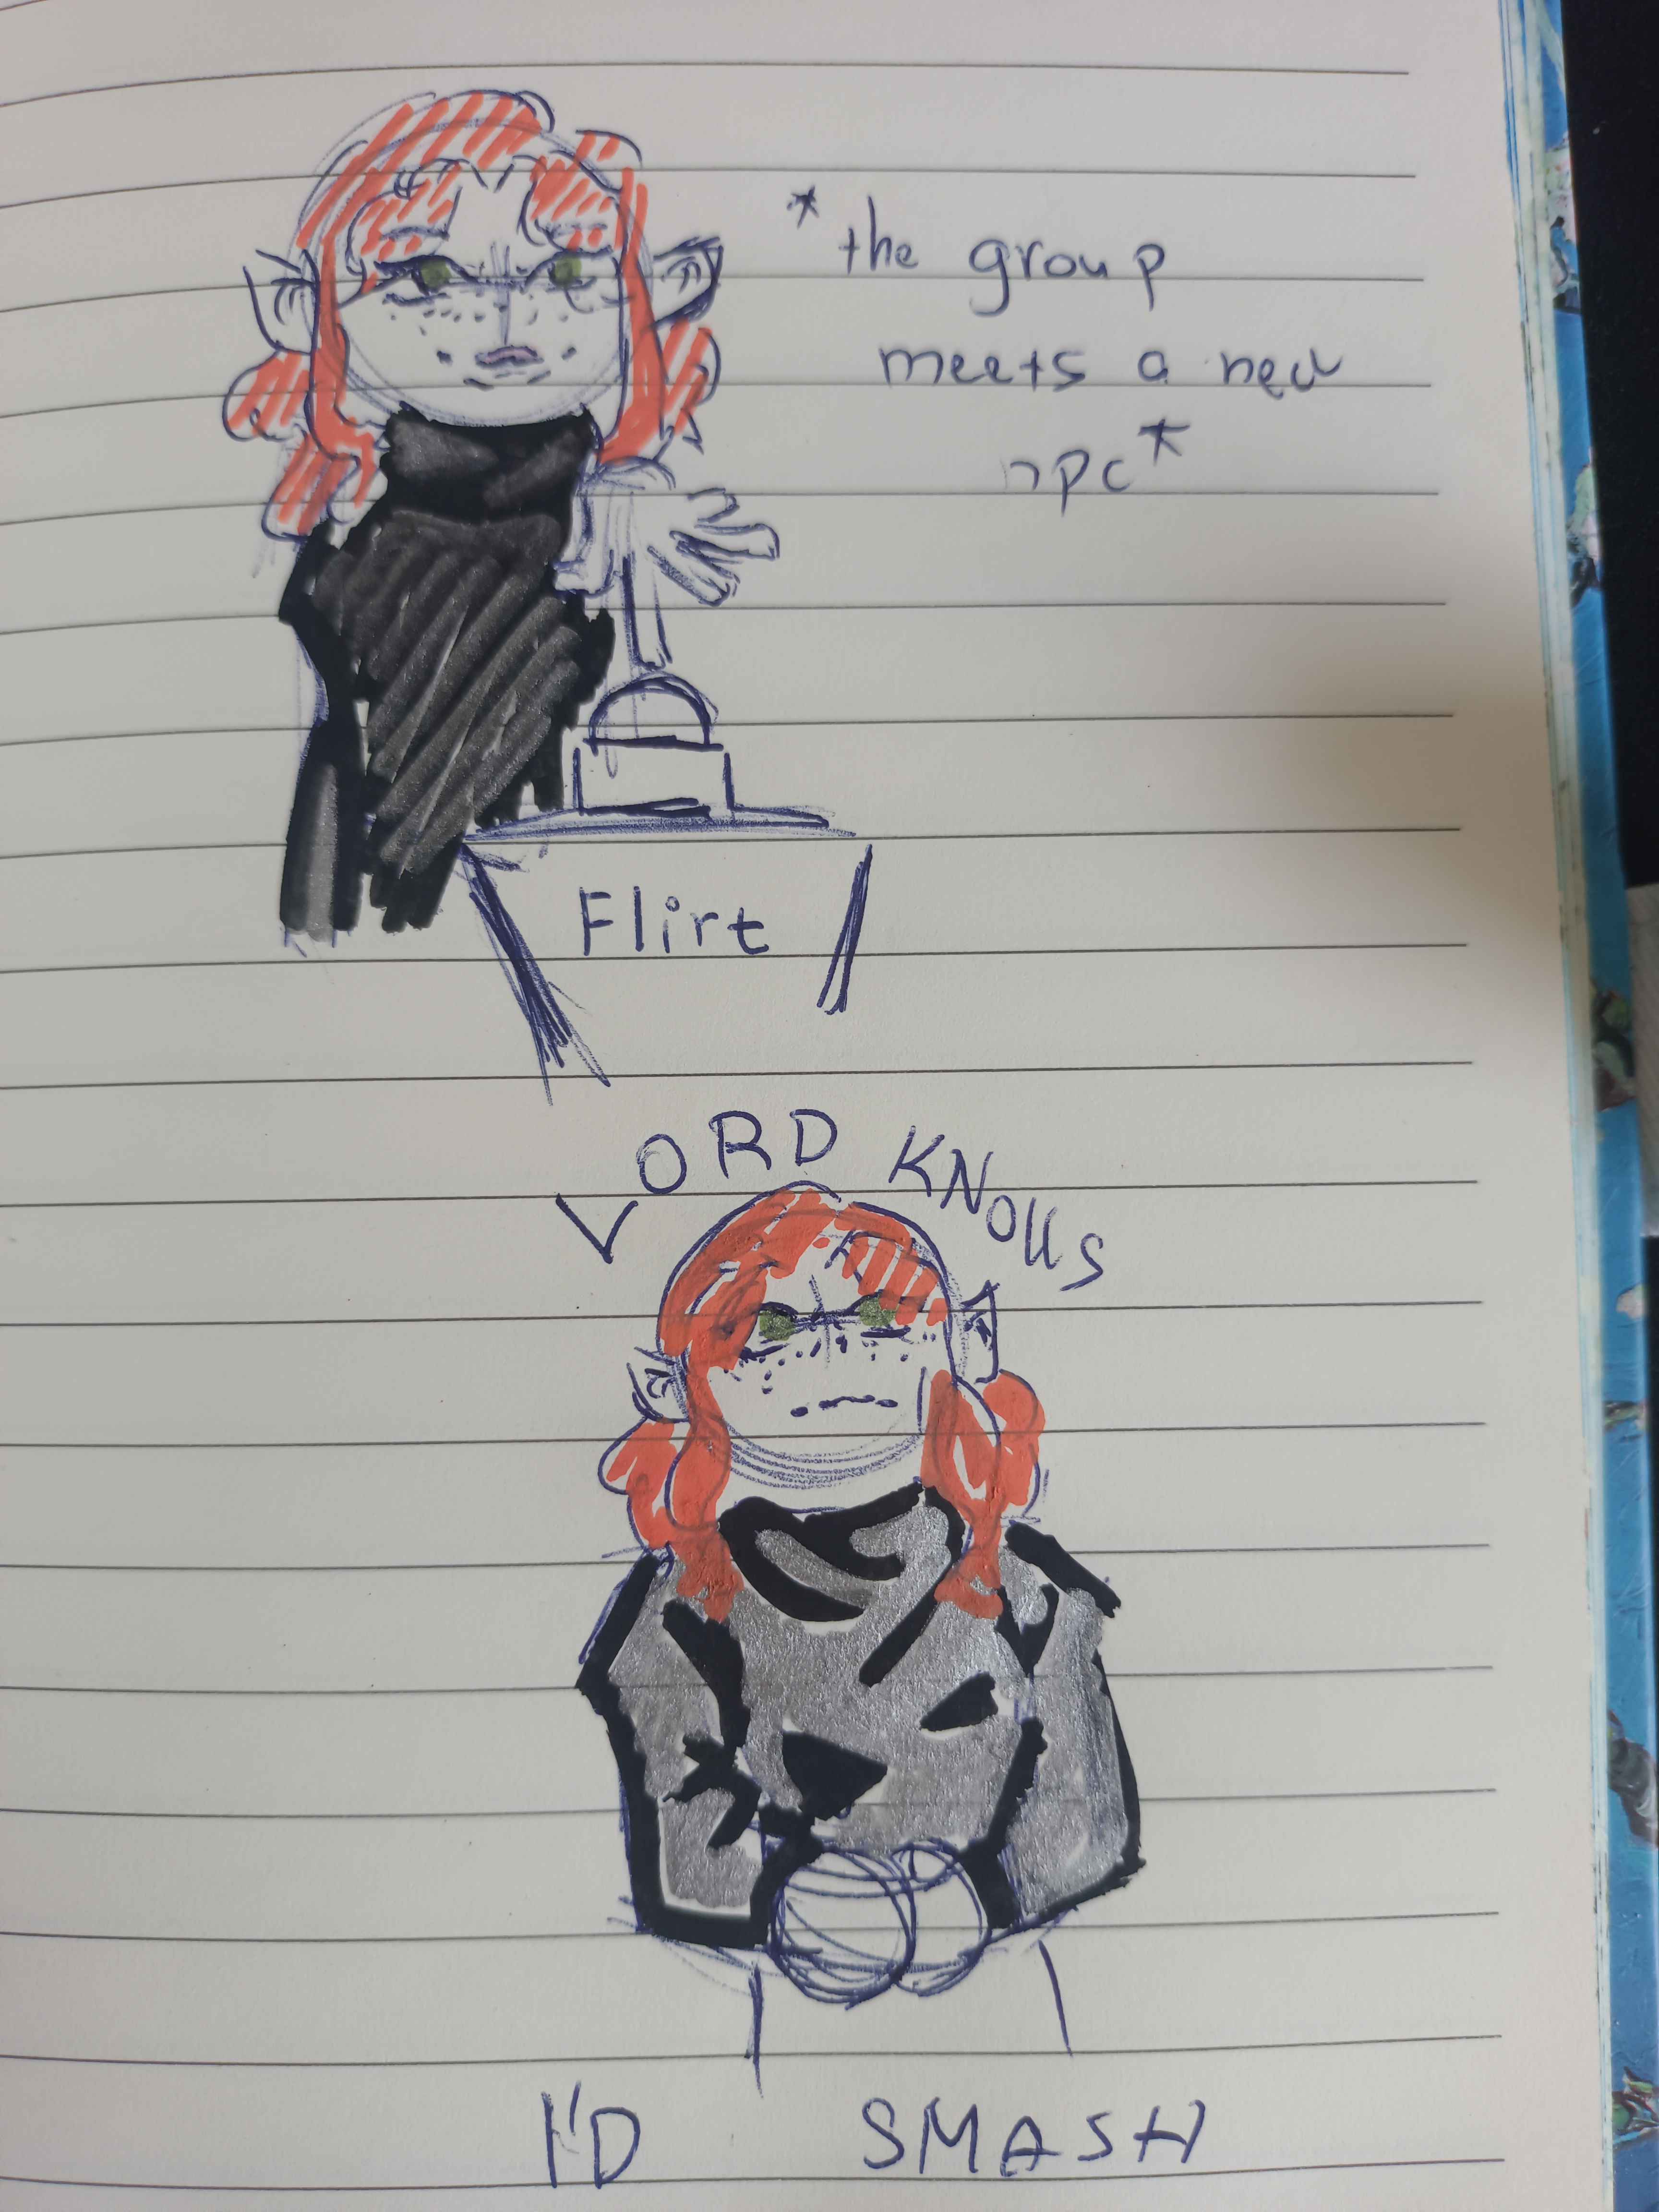 *the group
meets a new
npc*
Flirt
LORD KNOWS
I'D SMASH